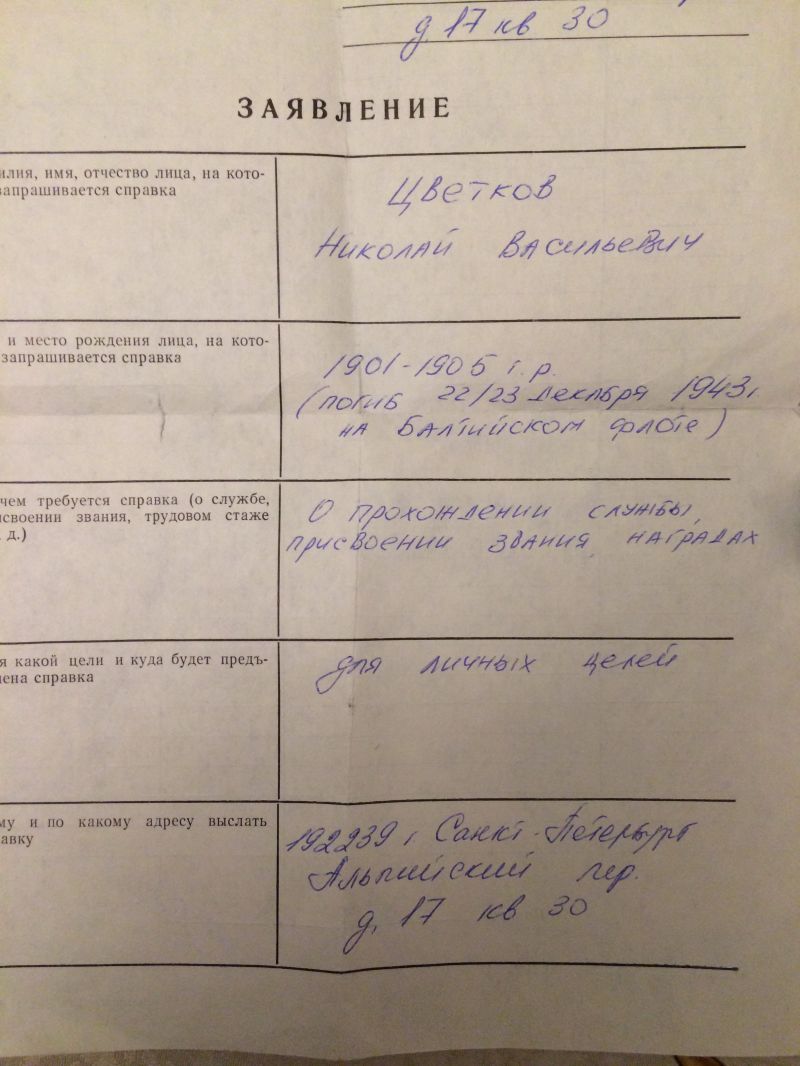 д. 17 кв 30
ЗАЯВЛЕНИЕ
илия, имя, отчество лица, на кото-
запрашивается справка
Цветков
Николай Васильевич
и место рождения лица, на кото-
запрашивается справка
1901-1905 г.р.
(погиб 22/23 декабря 1943г
на Балтийском флоте)
чем требуется справка (о службе,
исвоении звания, трудовом стаже
д.)
О прохождении службы,
присвоении звания, наградах
я какой цели и куда будет предъ-
лена справка
для личных целей
му и по какому адресу выслать
авку
192239 г Санкт-Петербург
Альпийский пер.
д. 17 кв 30